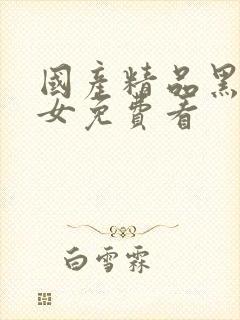 國產精品黑
女免費看
白雪霖